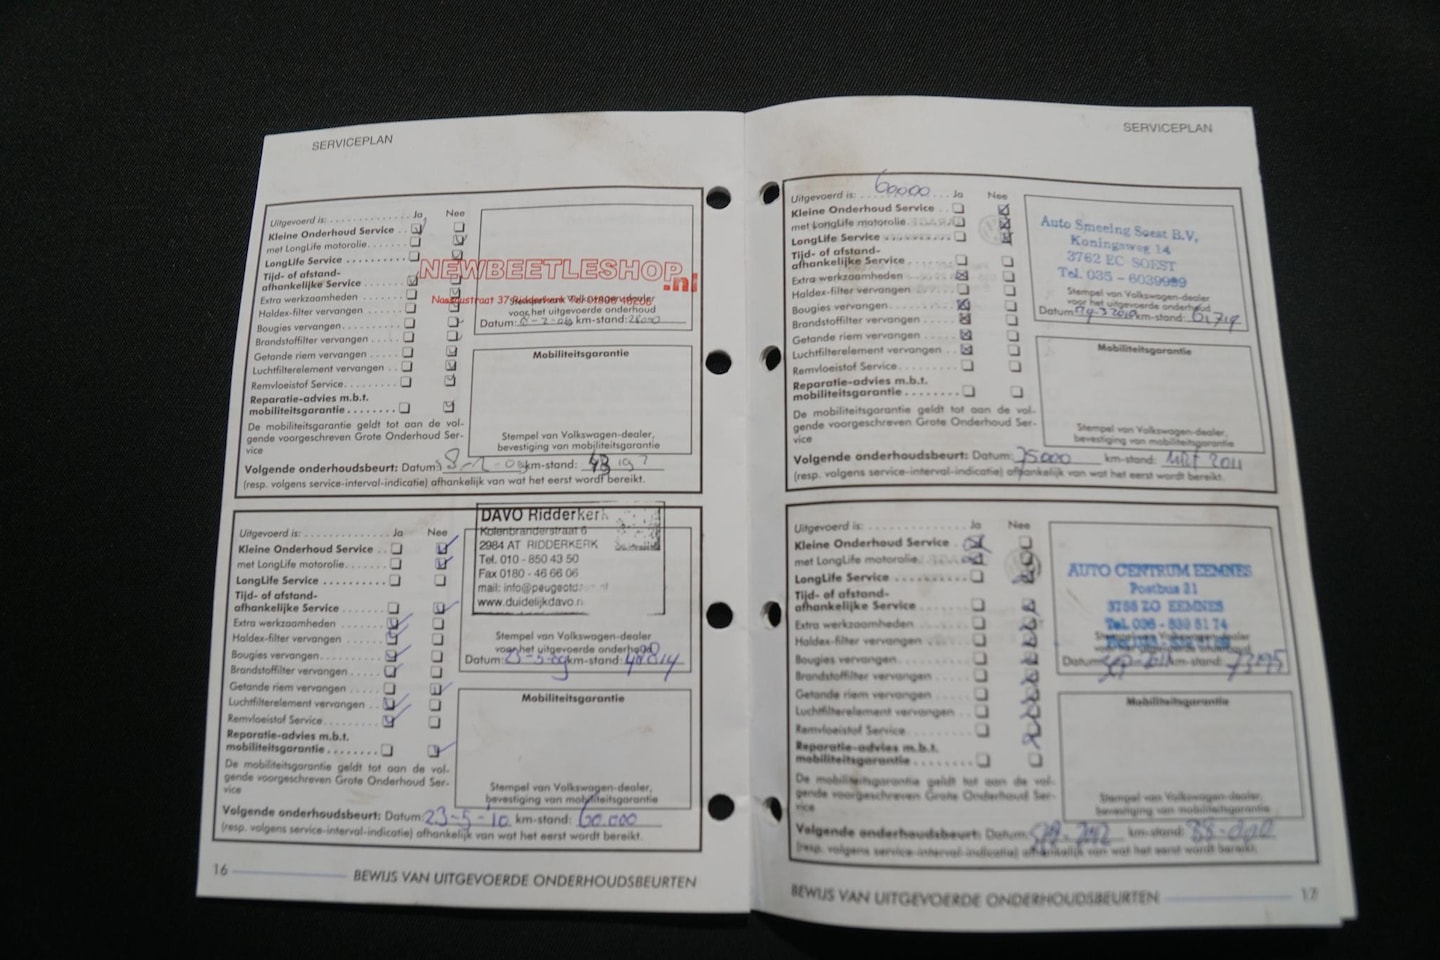 SERVICEPLAN
Uitgevoerd is: . . . . . . . . . . . . . . . Ja Nee
Kleine Onderhoud Service . .
met LongLife motorolie . . . . . .
LongLife Service . . . . . . . . . .
Tijd- of afstand-
afhankelijke Service . . . . . . .
Extra werkzaamheden
Haldex-filter vervangen . . . . .
Bougies vervangen . . . . . . . .
Brandstoffilter vervangen . . . .
Getande riem vervangen . . . .
Luchtfilterelement vervangen . .
Remvloeistof Service . . . . . . .
Reparatie-advies m.b.t.
mobiliteitsgarantie . . . . . . . .
De mobiliteitsgarantie geldt tot aan de vol-
gende voorgeschreven Grote Onderhoud Ser-
vice
NEWBEETLESHOP.nl
Stempel van Volkswagen-dealer
voor het uitgevoerde onderhoud
Datum: km-stand:
Mobiliteitsgarantie
Stempel van Volkswagen-dealer,
bevestiging van mobiliteitsgarantie
Volgende onderhoudsbeurt: Datum: km-stand:
(resp. volgens service-interval-indicatie) afhankelijk van wat het eerst wordt bereikt.
Uitgevoerd is: . . . . . . . . . . . . . . . Ja Nee
Kleine Onderhoud Service . .
met LongLife motorolie . . . . . .
LongLife Service . . . . . . . . . .
Tijd- of afstand-
afhankelijke Service . . . . . . .
Extra werkzaamheden
Haldex-filter vervangen . . . . .
Bougies vervangen . . . . . . . .
Brandstoffilter vervangen . . . .
Getande riem vervangen . . . .
Luchtfilterelement vervangen . .
Remvloeistof Service . . . . . . .
Reparatie-advies m.b.t.
mobiliteitsgarantie . . . . . . . .
De mobiliteitsgarantie geldt tot aan de vol-
gende voorgeschreven Grote Onderhoud Ser-
vice
DAVO Ridderkerk
Kolenbranderstraat 6
2984 AT RIDDERKERK
Tel. 010 - 850 43 50
Fax 0180 - 46 66 06
mail: info@peugeot
www.duidelijkdavo.n
Stempel van Volkswagen-dealer
voor het uitgevoerde onderhoud
Datum: km-stand: 48814
Mobiliteitsgarantie
Stempel van Volkswagen-dealer,
bevestiging van mobiliteitsgarantie
Volgende onderhoudsbeurt: Datum: 23-5-10 km-stand: 60.000
(resp. volgens service-interval-indicatie) afhankelijk van wat het eerst wordt bereikt.
16 BEWIJS VAN UITGEVOERDE ONDERHOUDSBEURTEN
SERVICEPLAN
Uitgevoerd is: 60000 Ja Nee
Kleine Onderhoud Service . .
met LongLife motorolie
LongLife Service
Tijd- of afstand-
afhankelijke Service . . . . . . .
Extra werkzaamheden
Haldex-filter vervangen
Bougies vervangen . . . . . . . .
Brandstoffilter vervangen . . . .
Getande riem vervangen . . . .
Luchtfilterelement vervangen . .
Remvloeistof Service . . . . . . .
Reparatie-advies m.b.t.
mobiliteitsgarantie . . . . . . . .
De mobiliteitsgarantie geldt tot aan de vol-
gende voorgeschreven Grote Onderhoud Ser-
vice
Auto Smeeing Soest B.V.
Koningsweg 14
3762 EC SOEST
Tel. 035 - 6039999
Stempel van Volkswagen-dealer
voor het uitgevoerde onderhoud
Datum: km-stand: 61714
Mobiliteitsgarantie
Stempel van Volkswagen-dealer,
bevestiging van mobiliteitsgarantie
Volgende onderhoudsbeurt: Datum: 75000 km-stand: MRT 2011
(resp. volgens service-interval-indicatie) afhankelijk van wat het eerst wordt bereikt.
Uitgevoerd is: . . . . . . . . . . . . . . . Ja Nee
Kleine Onderhoud Service
met LongLife motorolie
LongLife Service . . . . . . . . . .
Tijd- of afstand-
afhankelijke Service . . . . . . .
Extra werkzaamheden
Haldex-filter vervangen . . . . .
Bougies vervangen . . . . . . . .
Brandstoffilter vervangen . . . .
Getande riem vervangen . . . .
Luchtfilterelement vervangen . .
Remvloeistof Service . . . . . . .
Reparatie-advies m.b.t.
mobiliteitsgarantie . . . . . . . .
De mobiliteitsgarantie geldt tot aan de vol-
gende voorgeschreven Grote Onderhoud Ser-
vice
AUTO CENTRUM EEMNES
Postbus 21
3755 ZG EEMNES
Stempel van Volkswagen-dealer
voor het uitgevoerde onderhoud
Datum: km-stand:
Mobiliteitsgarantie
Stempel van Volkswagen-dealer,
bevestiging van mobiliteitsgarantie
Volgende onderhoudsbeurt: Datum: km-stand: 88-000
(resp. volgens service-interval-indicatie) afhankelijk van wat het eerst wordt bereikt.
BEWIJS VAN UITGEVOERDE ONDERHOUDSBEURTEN 17